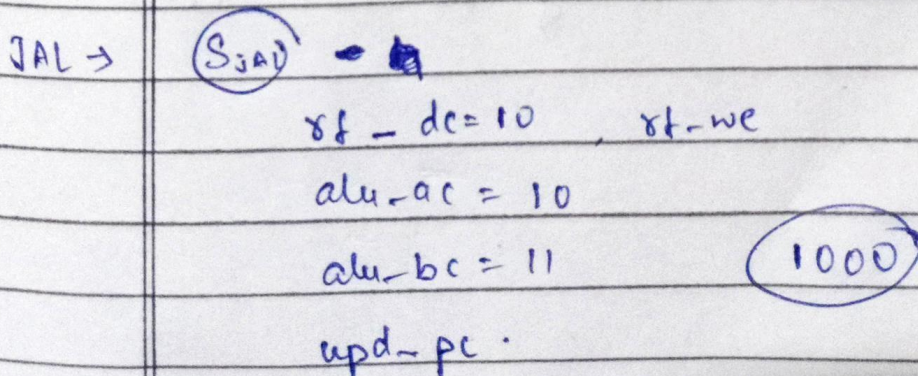 JAL → SJAL -
rf_dc=10, rf_we
alu_ac = 10
alu_bc = 11 1000
upd_pc.